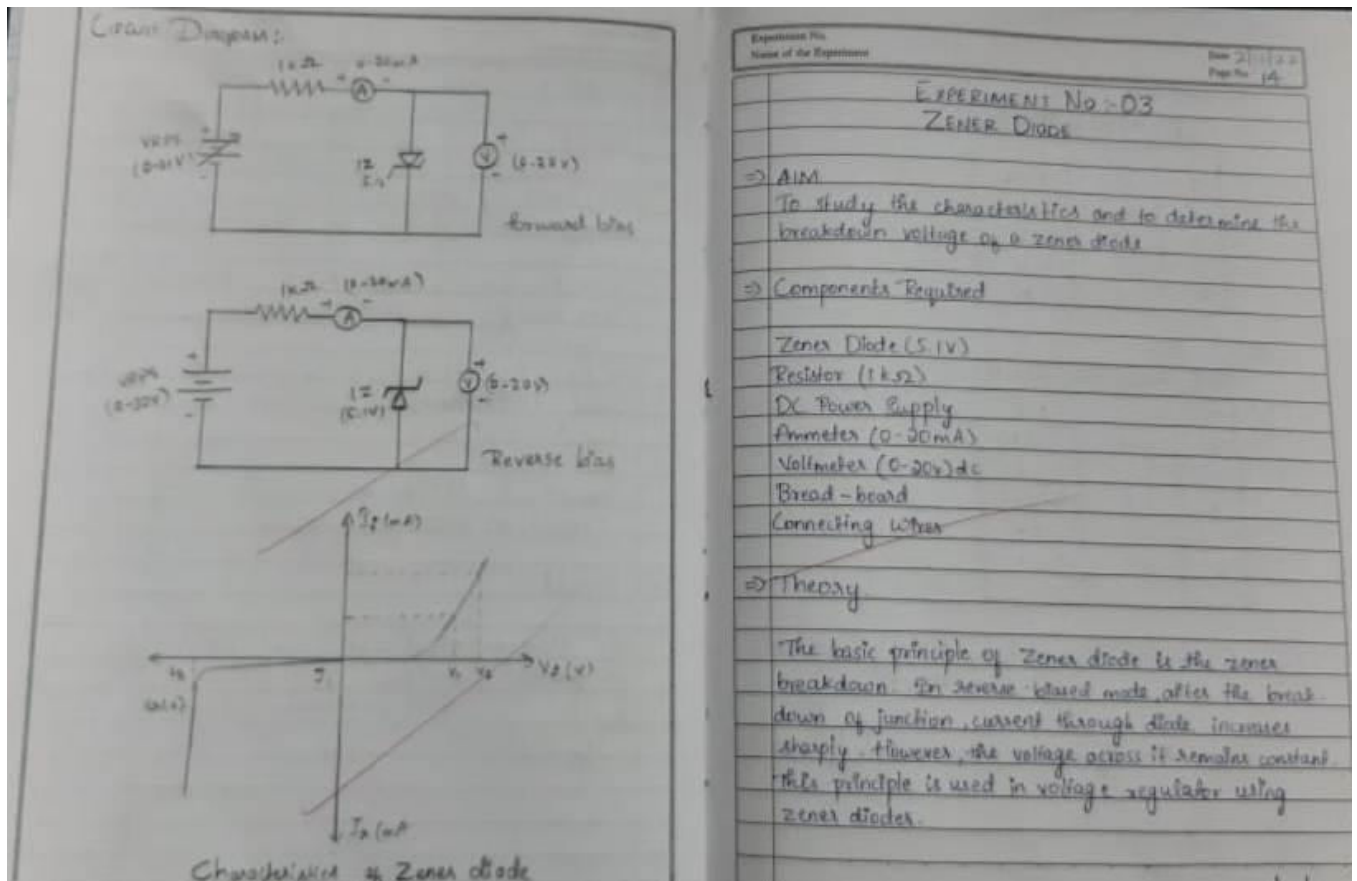 Circuit Diagram:
1kΩ
0-20mA
+
A
-
VRPS
+
-
1Z
5.1
V
+
-
(0-20v)
forward bias
1kΩ
(0-20mA)
+
A
-
VRPS
(0-30v)
+
-
1Z
(5.1V)
V
+
-
(0-20v)
Reverse bias
If (mA)
V1
V2
Vf (V)
IR (mA
Characteristics of Zener diode
Experiment No.
Name of the Experiment
Date
Page No. 14
EXPERIMENT NO :- 03
ZENER DIODE
=> AIM
To study the characteristics and to determine the
breakdown voltage of a zener diode
=> Components Required
Zener Diode (5.1V)
Resistor (1kΩ)
DC Power Supply
Ammeter (0-20mA)
Voltmeter (0-20v)dc
Bread-board
Connecting wires
=> Theory.
The basic principle of Zener diode is the zener
breakdown. In reverse biased mode, after the break-
down of junction, current through diode increases
sharply. However, the voltage across it remains constant.
this principle is used in voltage regulator using
zener diodes.